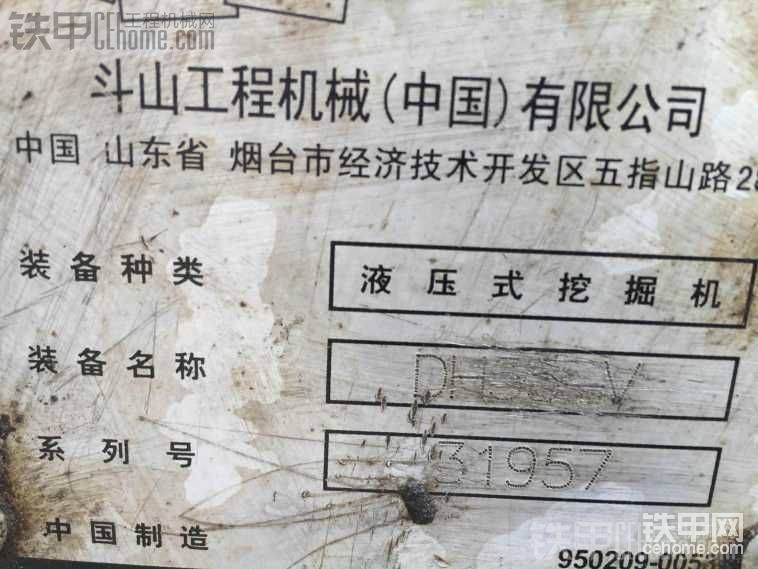 铁甲 工程机械网
CEhome.com
斗山工程机械(中国)有限公司
中国 山东省 烟台市经济技术开发区五指山路
装备种类 液压式挖掘机
装备名称 DH V
系列号 31957
中国制造
铁甲网
950209-005
cehome.com